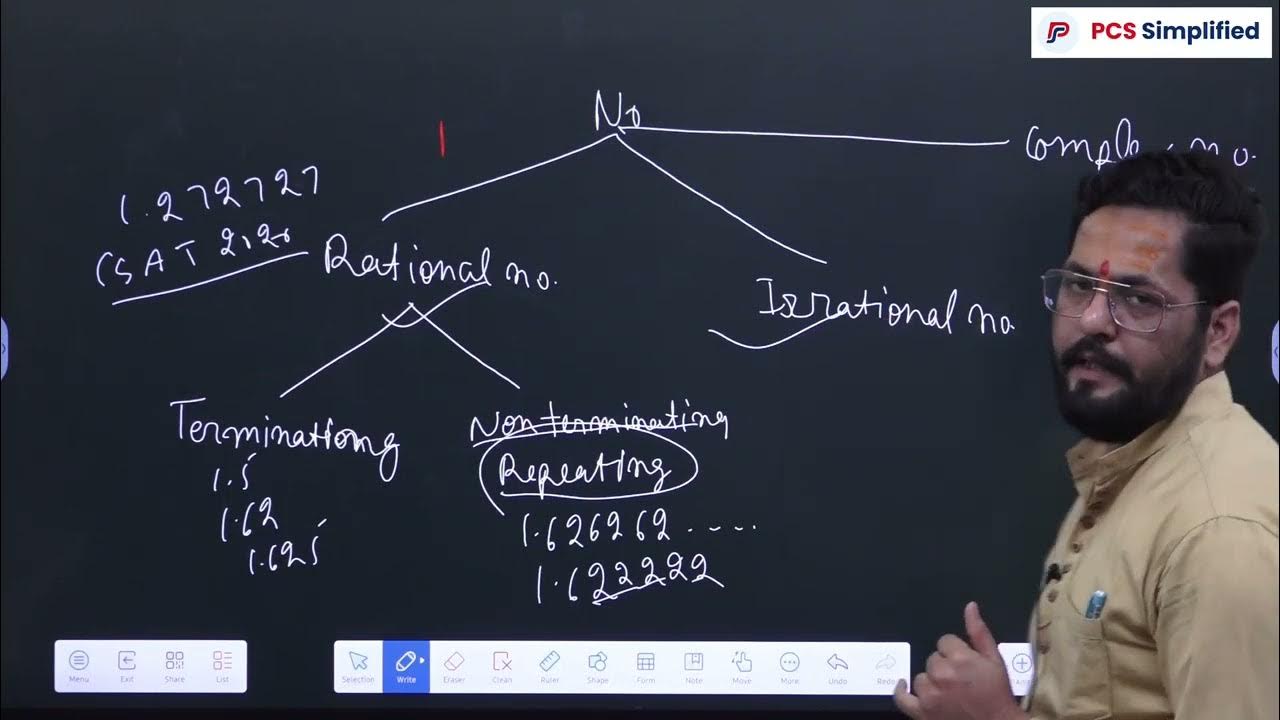 PCS Simplified
No
Comple no.
1.272727
CSAT 2020
Rational no.
Irrational no.
Terminationg
Non terminating
Repeating
1.5
1.62
1.625
1.626262 ----
1.622222
Menu
Exit
Share
List
Selection
Write
Eraser
Clean
Ruler
Shape
Form
Note
Move
More
Undo
Redo